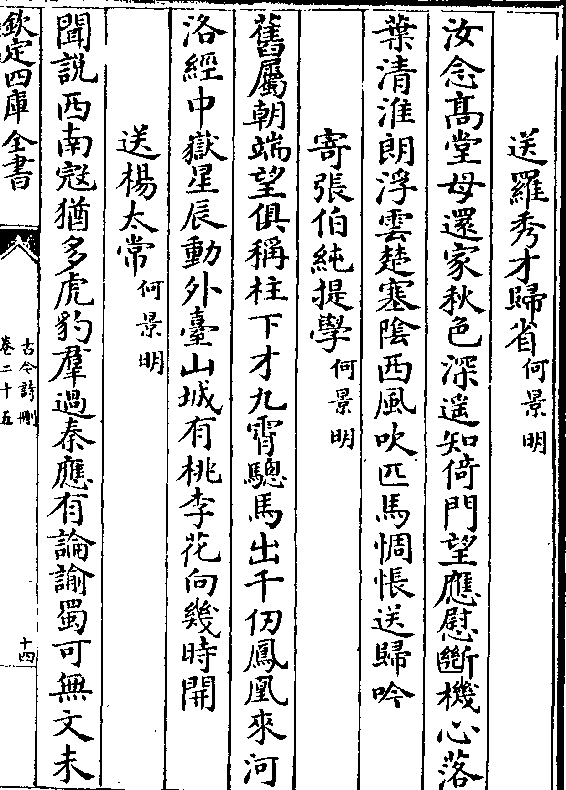 送羅秀才歸省何景明
汝念髙堂母還家秋色深遥知倚門望應慰斷機心落
葉清淮朗浮雲楚塞隂西風吹匹馬惆悵送歸吟
寄張伯純提學何景明
舊屬朝端望俱稱柱下才九霄驄馬出千仞鳳凰來河
洛經中嶽星辰動外臺山城有桃李花向幾時開
送楊太常何景明
聞說西南冦猶多虎豹羣過秦應有論諭蜀可無文未
欽定四庫全書
古今詩刪
卷二十五
十四